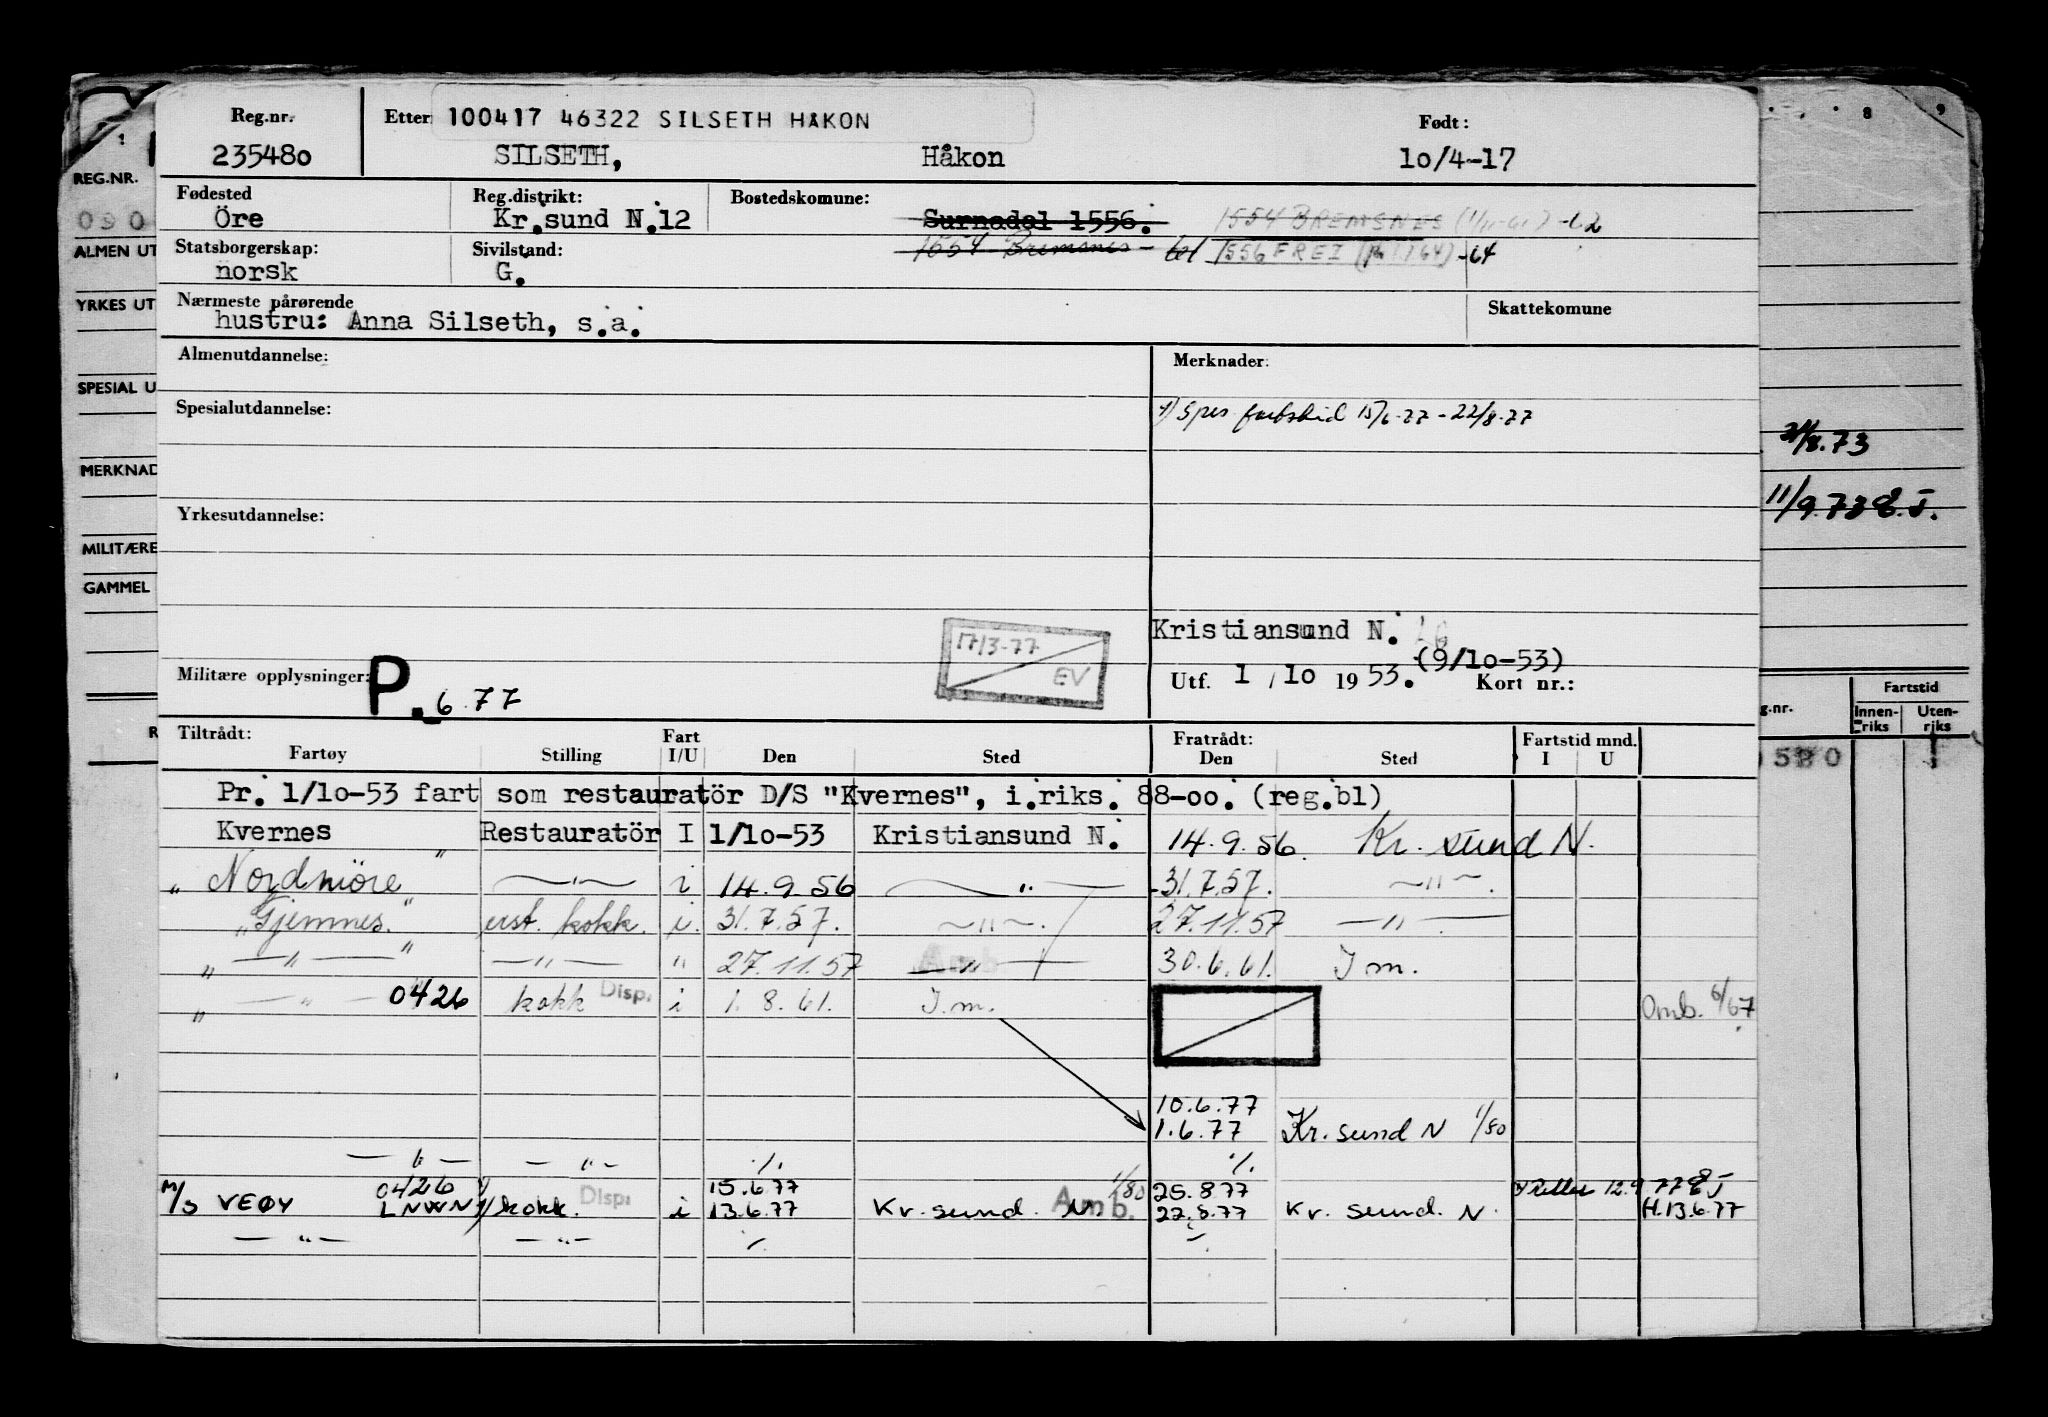 Reg.nr. Etter 100417 46322 SILSETH HÅKON Født:
235480 SILSETH, Håkon 10/4-17
Fødested Reg.distrikt: Bostedskomune:
Öre Kr.sund N.12 Surnadal 1556. 1554 BREMSNES (1/11-61) -62
Statsborgerskap: Sivilstand: 1554 Bremsnes - 1556 FREI -64
norsk G.
Nærmeste pårørende Skattekomune
hustru: Anna Silseth, s.a.
Almenutdannelse: Merknader:
Spesialutdannelse: 1) Spes fartstid 15/6-77 - 22/8-77
Yrkesutdannelse:
Kristiansund N.
17/3-77
EV
Militære opplysninger: P. 6.77 Utf. 1/10 1953. (9/10-53) Kort nr.:
Tiltrådt: Fart Fratrådt: Fartstid mnd.
Fartøy Stilling I/U Den Sted Den Sted I U
Pr. 1/10-53 fart som restauratör D/S "Kvernes", i.riks. 88-00. (reg.bl)
Kvernes Restauratör I 1/10-53 Kristiansund N. 14.9.56. Kr. sund N.
"Nordmöre" — " — i 14.9.56 — " — 31.7.57. — " —.
"Gjemnes." erst. kokk. i. 31.7.57. — " —. 27.11.57 — " —.
" — " — " — " — " 27.11.57 — " — 30.6.61. I m.
Amb
" — " — " 0426 kokk Disp. i 1.8.61. I.m. Omb. 6/67
10.6.77
1.6.77 Kr. sund N 1/80
— " — — " — ./. ./.
0426 15.6.77 1/80 25.8.77 Rettet 12.9 77 EJ
M/S VEØY LNWN 1) kokk. Disp: i 13.6.77 Kr. sund. N. Amb. 22.8.77 Kr. sund. N. H.13.6.77
— " — — " — ./. ./.
REG.NR.
090
ALMEN UT
YRKES UT
SPESIAL U
MERKNAD
MILITÆRE
GAMMEL
R
8 9
21/8.73
11/9.73 E.J.
g.nr. Fartstid
Innen-riks Uten-riks
0580